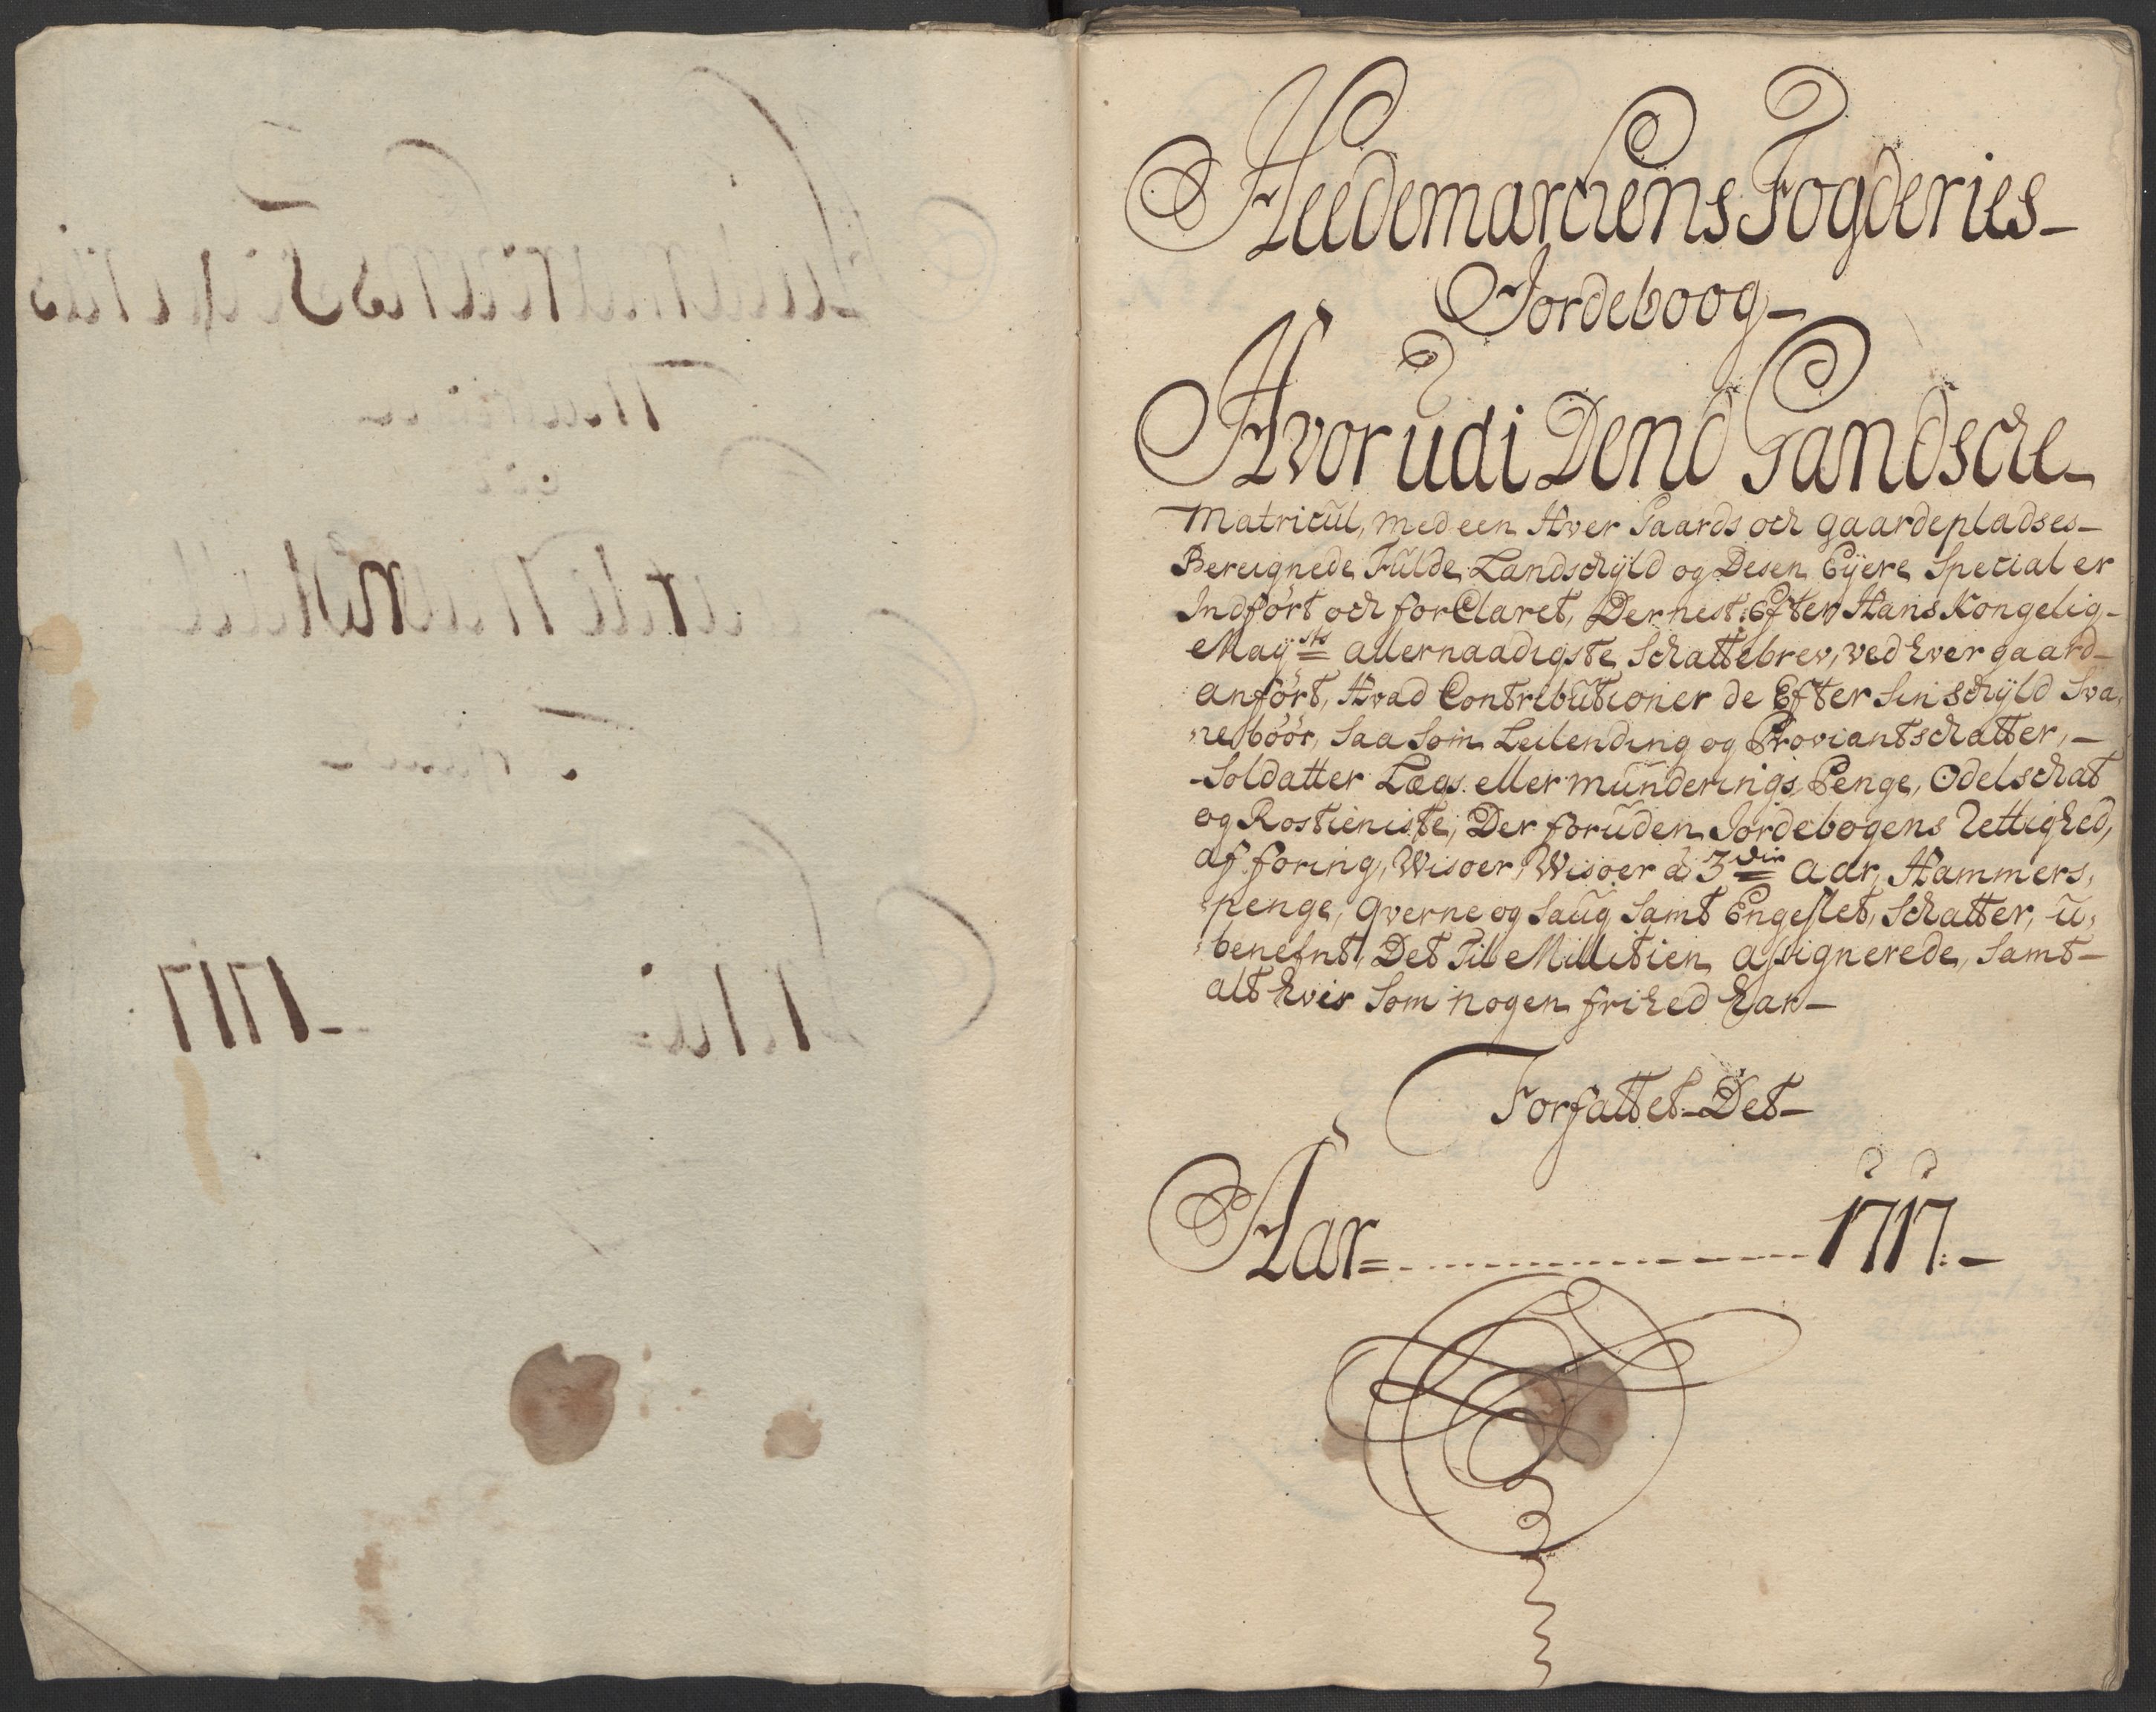 Heedemarchens Fogderies-
Jordeboog-
Hvorudi Dend Gandsche-
Matricül, med een Hver Gaards och gaardepladses-
Bereignede Fulde Landschÿld og Desen Eÿere Special er
Indført och forClaret, Dernest Efter Hans Kongelig-
Mayˢᵗˢ allernaadigste Schattebrev, ved hver gaard-
anført, Hvad Contributioner de Efter Sin schÿld Sva,
,,re böör, Saa Som Leilending og Proviantschatter,-
-Soldatter Lægs eller münderings Penge, Odelschat
og Rostieniste, Der foruden Jordebogens Rettighed,
af foring, Wisøer, Wisøer à 3 die aar, Hammers,
penge, Qverne og Saug Samt Engeslet, Schatter, ü,
benefnt, Det Til Millitien assignerede, Samt-
alt hvis Som nogen frihed har-
Forfattet-Det-
Aar= 1717.-